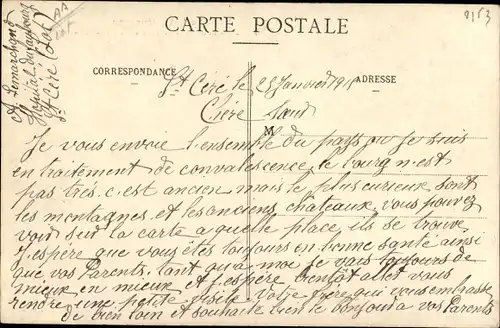 CARTE POSTALE
2153
A. Lemarchand
Hôpital
St Céré (Lot)
CORRESPONDANCE
ADRESSE
St Céré le 28 Janvier 191
Chère Sœur
M
Je vous envoie l'ensemble du pays ou je suis
en traitement de convalescence, le bourg n'est
pas très. c'est ancien mais le plus curieux sont
les montagnes, et les anciens chateaux, vous pouvez
voir sur la carte a quelle place ils se trouve
J'espère que vous êtes toujours en bonne santé ainsi
que vos Parents. tant qu'a moi je vais toujours de
mieux en mieux et J'espère bientôt aller vous
rendre une petite visite Votre frère qui vous embrasse
de bien loin et souhaite bien le bonjour a vos Parents